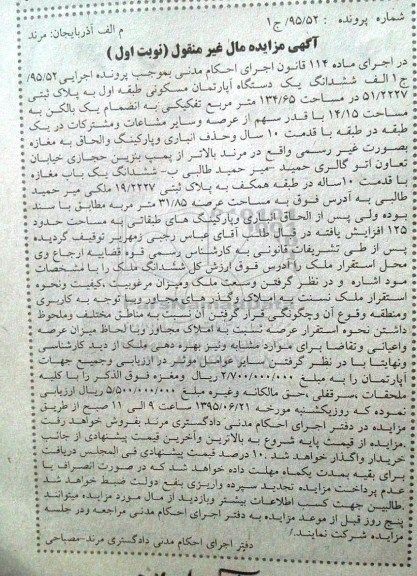 شماره پرونده : ۹۵/۵۲/ج۱
م الف آذربایجان: مرند
آگهی مزایده مال غیر منقول (نوبت اول)
در اجرای ماده ۱۱۴ قانون اجرای احکام مدنی بموجب پرونده اجرایی ۹۵/۵۲/
ج۱ الف ششدانگ یک دستگاه آپارتمان مسکونی طبقه اول به پلاک ثبتی
۵۱/۲۲۲۷ در مساحت ۱۳۴/۶۵ متر مربع تفکیکی به انضمام یک بالکن به
مساحت ۱۴/۱۵ با قدر سهم از عرصه وسایر مشاعات ومشترکات در یک
طبقه در طبقه با قدمت ۱۰ سال وحذف انباری وپارکینگ والحاق به مغازه
بصورت غیر رسمی واقع در مرند بالاتر از پمپ بنزین حجازی خیابان
تعاون اتو گالری حمید -میر حمید طالبی ب- ششدانگ یک باب مغازه
با قدمت ۱۰ساله در طبقه همکف به پلاک ثبتی ۱۹/۲۲۲۷ ملکی میر حمید
طالبی به آدرس فوق به مساحت عرصه ۳۱/۸۵ متر مربه مطابق با سند
بوده ولی پس از الحاق انباری وپارکینگ های طبقاتی به مساحت حدود
۱۲۵ افزایش یافته در قبال طلب آقای عباس رجبی زمهریر توقیف گردیده
پس از طی تشریفات قانونی به کارشناس رسمی قوه قضاییه ارجاع وی
محل استقرار ملک را آدرس فوق ارزش کل ششدانگ ملک را با مشخصات
مود اشاره و در نظر گرفتن وسعت ملک ومیزان مرغوبیت ،کیفیت ونحوه
استقرار ملک نسبت به املاک وگذر های مجاور وبا توجه به کاربری
ومنطقه وقوع آن وچگونگی قرار گرفتن آن نسبت به مناطق مختلف وملحوظ
داشتن نحوه استقرار عرصه نسبت به املاک مجاور وبا لحاظ میزان عرصه
واعیانی وتقاضا برای موارد مشابه ونیز بهره دهی ملک از دید کارشناسی
ونهایتا با در نظر گرفتن سایر عوامل موثر در ارزیابی وجمیع جهات
آپارتمان را به مبلغ ۲/۷۰۰/۰۰۰/۰۰۰ ریال ومغزه فوق الذکر را با کلیه
ملحقات ،سرقفلی ،حق مالکانه وغیره مبلغ ۵/۵۰۰/۰۰۰/۰۰۰ ریال ارزیابی
نموده که روزیکشنبه مورخه ۱۳۹۵/۰۶/۲۱ ساعت ۹ الی ۱۱ صبح از طریق
مزایده در دفتر اجرای احکام مدنی دادگستری مرند بفروش خواهد رفت
.مزایده از قیمت پایه شروع به بالاترین وآخرین قیمت پیشنهادی از جانب
خریدار واگذار خواهد شد .۱۰ درصد قیمت پیشنهادی فی المجلس دریافت
برای بقیه بمدت یکماه مهلت داده خواهد شد که در صورت انصراف یا
عدم پرداخت مزایده تجدید سپرده واریزی بنفع دولت ضبط خواهد شد
.طالبین جهت کسب اطلاعات بیشتر وبازدید از مال مورد مزایده میتوانند
پنج روز قبل از موعد مزایده به دفتر اجرای احکام مدنی مراجعه ودر جلسه
مزایده شرکت نمایند./
دفتر اجرای احکام مدنی دادگستری مرند-مصباحی